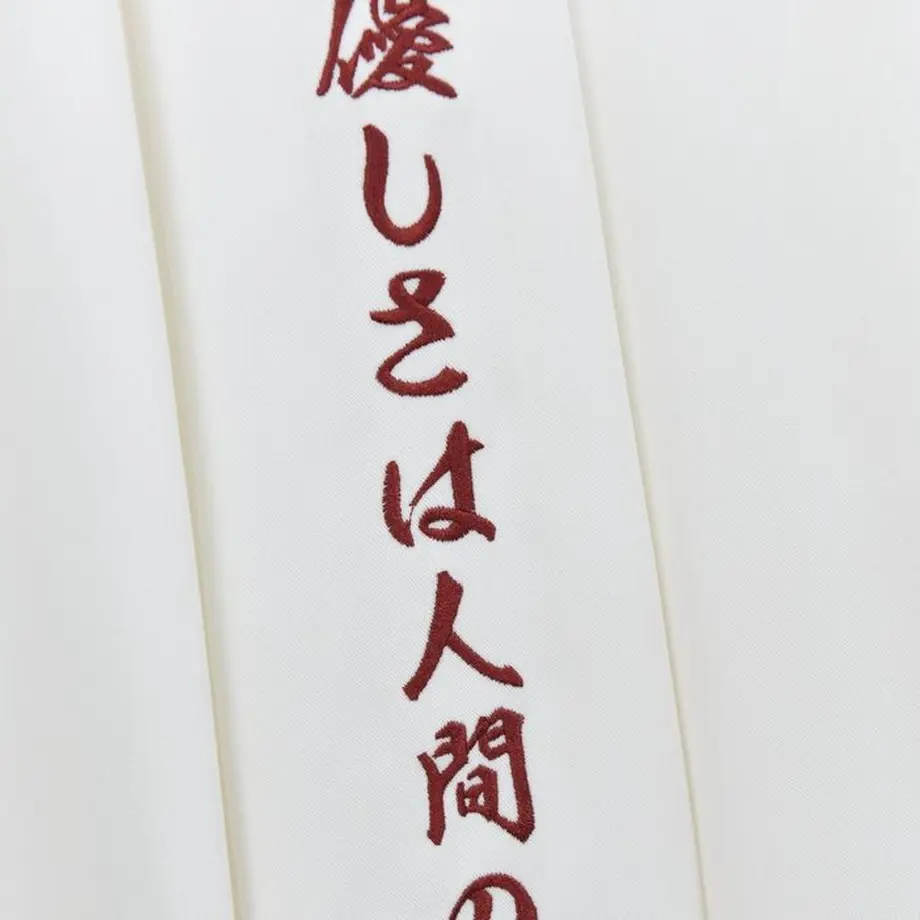 優しさは人間の